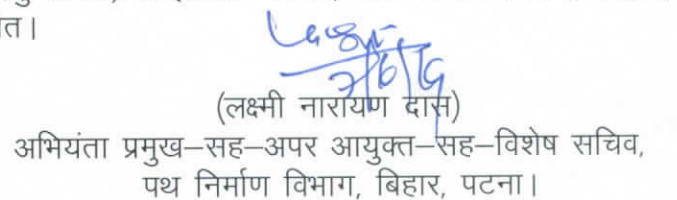 त।
(लक्ष्मी नारायण दास)
अभियंता प्रमुख–सह–अपर आयुक्त–सह–विशेष सचिव,
पथ निर्माण विभाग, बिहार, पटना।